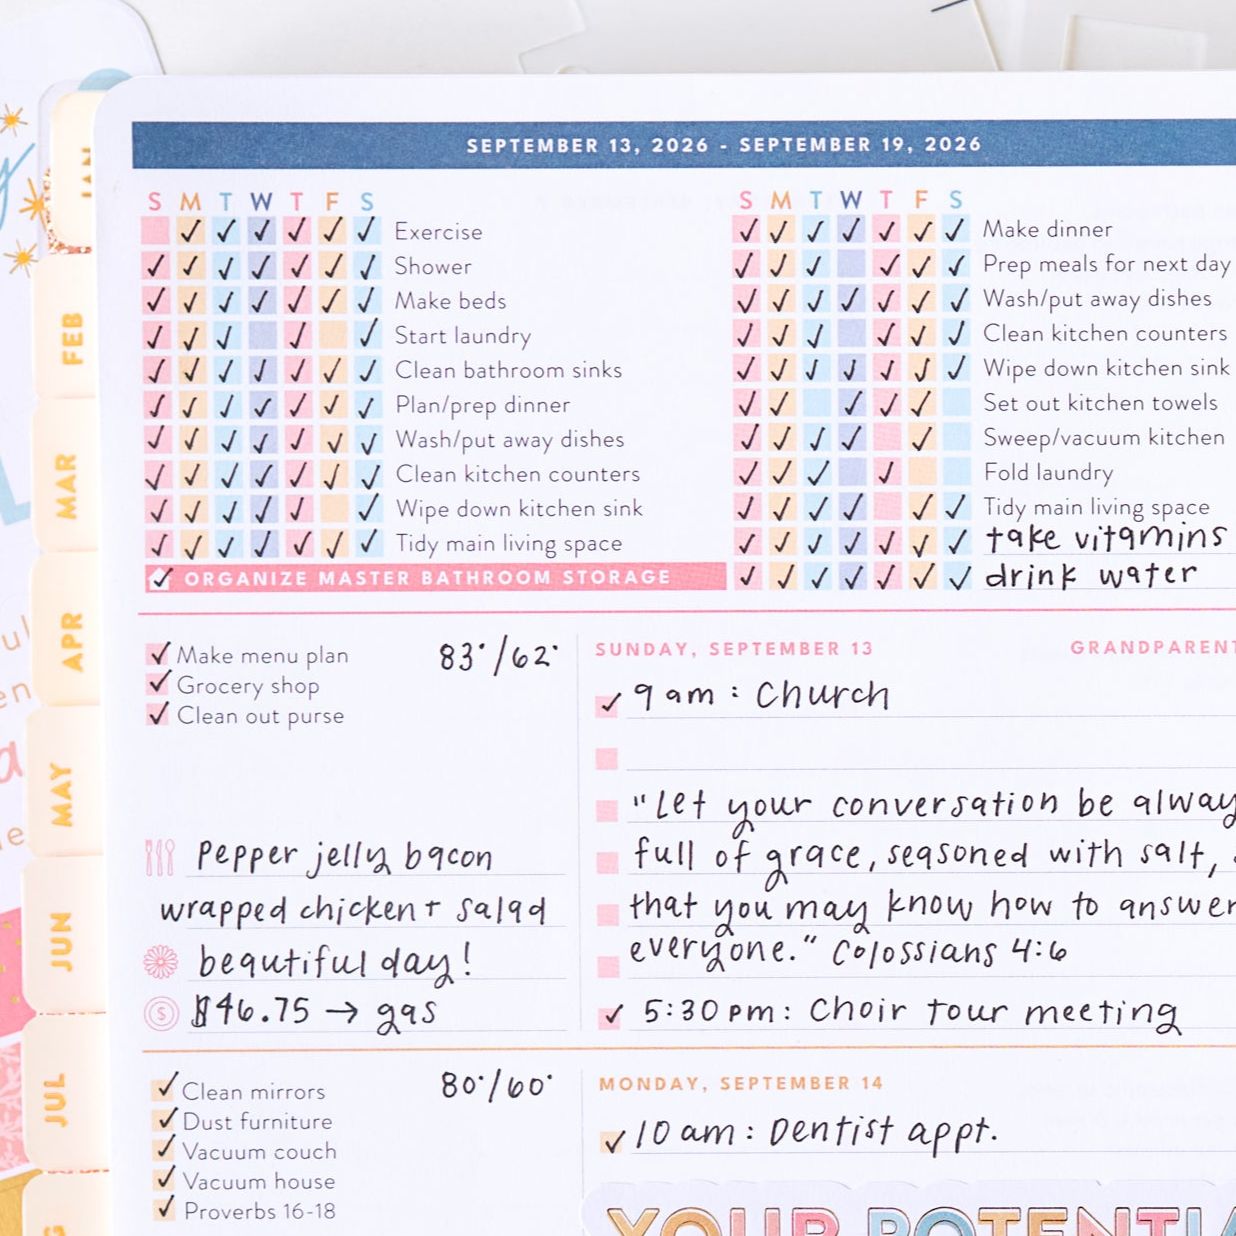 SEPTEMBER 13, 2026 - SEPTEMBER 19, 2026
S M T W T F S
Exercise
Shower
Make beds
Start laundry
Clean bathroom sinks
Plan/prep dinner
Wash/put away dishes
Clean kitchen counters
Wipe down kitchen sink
Tidy main living space
ORGANIZE MASTER BATHROOM STORAGE
S M T W T F S
Make dinner
Prep meals for next day
Wash/put away dishes
Clean kitchen counters
Wipe down kitchen sink
Set out kitchen towels
Sweep/vacuum kitchen
Fold laundry
Tidy main living space
take vitamins
drink water
Make menu plan
Grocery shop
Clean out purse
83°/62°
Pepper jelly bacon
wrapped chicken + salad
beautiful day!
$46.75 → gas
SUNDAY, SEPTEMBER 13
GRANDPARENT
9am: Church
"Let your conversation be alway
full of grace, seasoned with salt,
that you may know how to answer
everyone." Colossians 4:6
5:30pm: Choir tour meeting
Clean mirrors
Dust furniture
Vacuum couch
Vacuum house
Proverbs 16-18
80°/60°
MONDAY, SEPTEMBER 14
10am: Dentist appt.
YOUR POTENTIA
JAN
FEB
MAR
APR
MAY
JUN
JUL